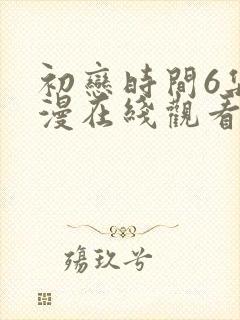 初戀時間6集
漫在綫觀看
殤玖兮